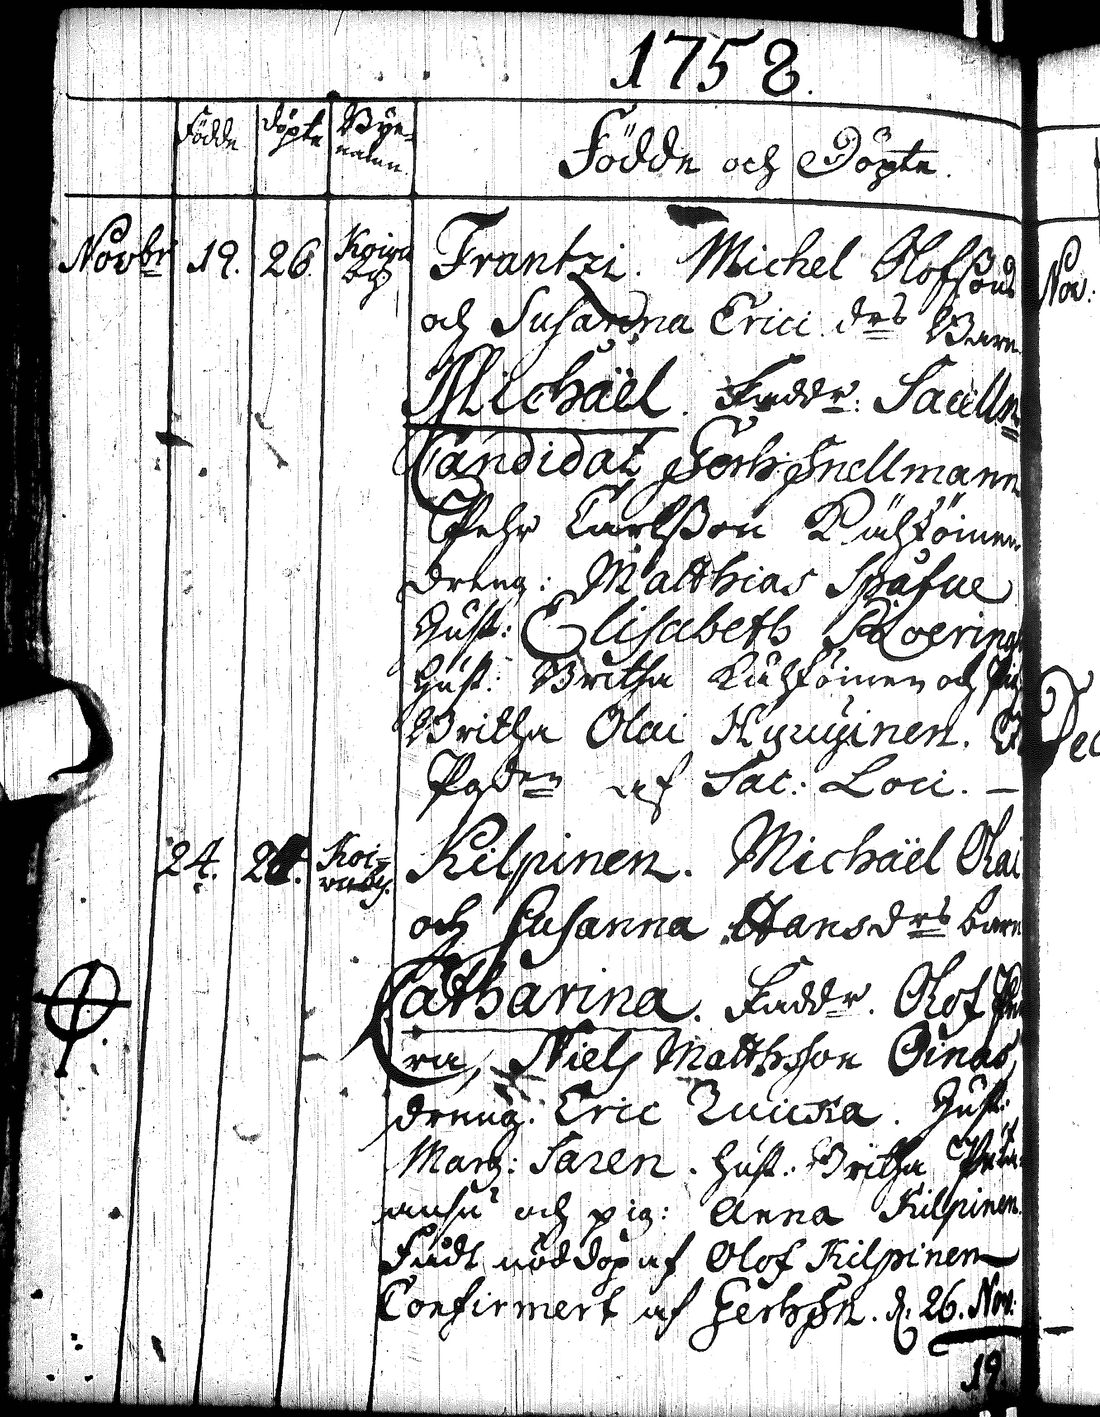 1758.
Födde döpte Bye=
namn.
Födde och Döpte.
Novbr 19. 26. Koiva
by Frantzi. Michel Olofsons
och Susanna Erici drs Barn
Michäel. Faddr: Sacelln
Candidat Gerh: Snellmann
Pehr Carlsson Kähköinen
dreng: Matthias Späfue
Hust: Elisabeth Roering
Hust: Britha Kähköinen och Pig
Britha Olai Kyuyinen.
Pgden af Sac: Loci. —
24. 26. Koi=
vuby. Kilpinen. Michäel Olai
och Susanna Hansdrs barn
Catharina. Faddr. Olof
ra, Niels Matthsson Oinas
dreng: Eric . Hust:
Marg: Saren. Hust: Britha
och pig: Anna Kilpinen.
Födt nöddöp af Olof Kilpinen
Confirmert af Gerh Sn. d. 26. Nov:
19.
Nov:
Dec